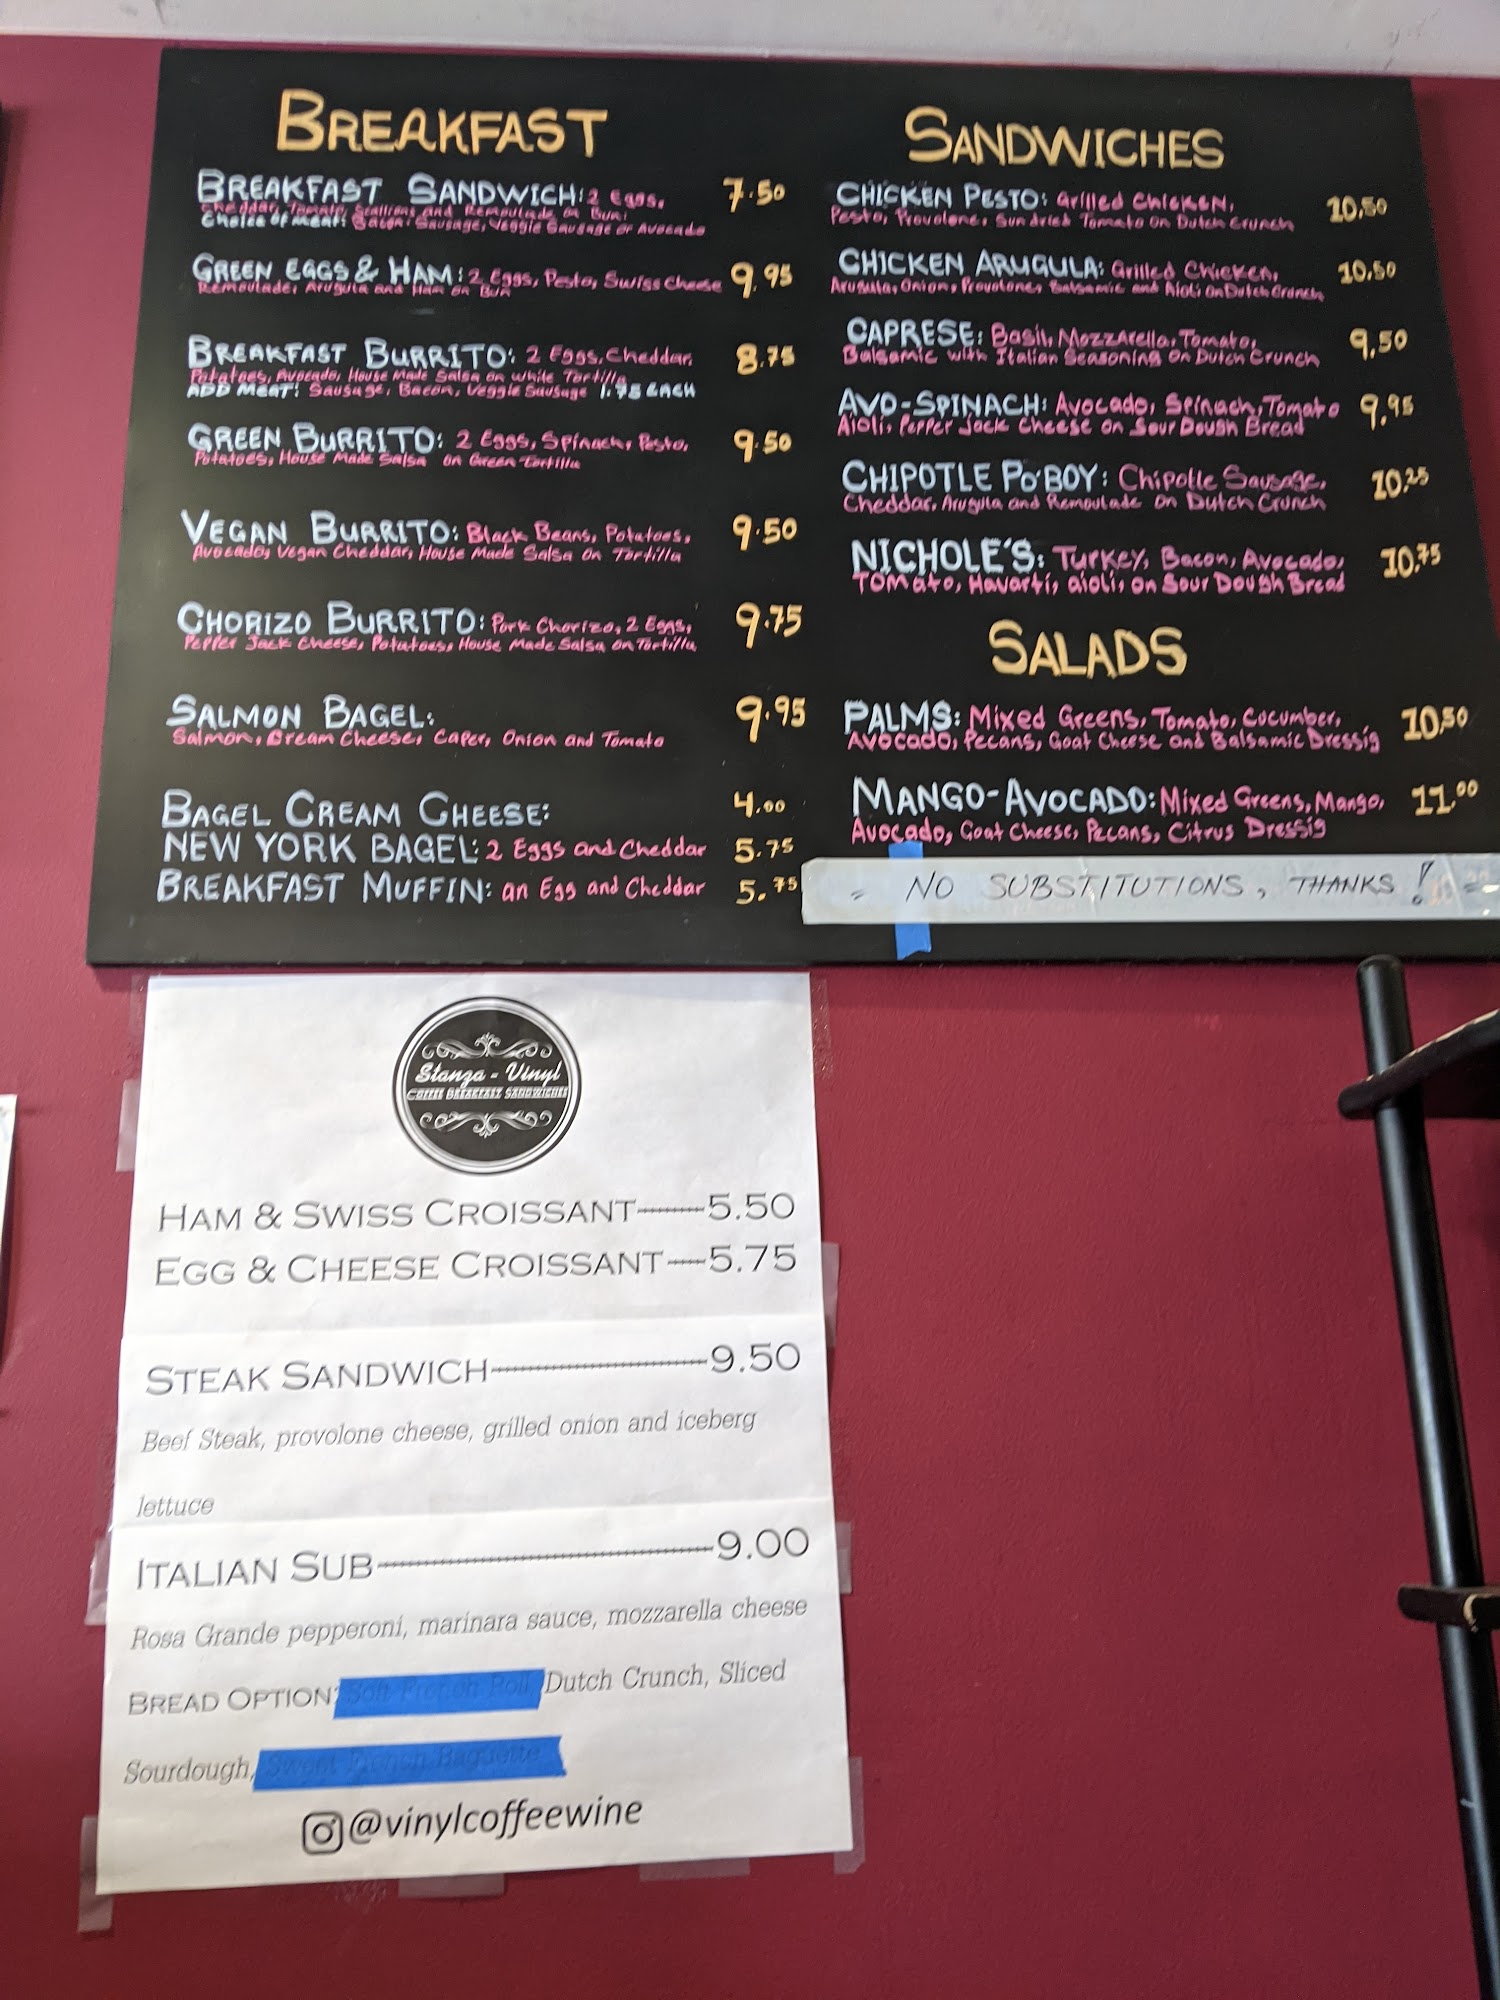 BREAKFAST
BREAKFAST SANDWICH: 2 Eggs,
Cheddar, Tomato, Scallions and Remoulade on Bun.
Choice of meat: Bacon, Sausage, Veggie Sausage or Avocado
7.50
GREEN EGGS & HAM: 2 Eggs, Pesto, Swiss Cheese
Remoulade, Arugula and Ham on Bun
9.95
BREAKFAST BURRITO: 2 Eggs, Cheddar,
Potatoes, Avocado, House Made Salsa on White Tortilla
ADD MEAT: Sausage, Bacon, Veggie Sausage 1.75 EACH
8.75
GREEN BURRITO: 2 Eggs, Spinach, Pesto,
Potatoes, House Made Salsa on Green Tortilla
9.50
VEGAN BURRITO: Black Beans, Potatoes,
Avocado, Vegan Cheddar, House Made Salsa on Tortilla
9.50
CHORIZO BURRITO: Pork Chorizo, 2 Eggs,
Pepper Jack Cheese, Potatoes, House Made Salsa on Tortilla
9.75
SALMON BAGEL:
Salmon, Cream Cheese, Caper, Onion and Tomato
9.95
BAGEL CREAM CHEESE: 4.00
NEW YORK BAGEL: 2 Eggs and Cheddar 5.75
BREAKFAST MUFFIN: an Egg and Cheddar 5.75
SANDWICHES
CHICKEN PESTO: Grilled Chicken,
Pesto, Provolone, Sun dried Tomato on Dutch Crunch
10.50
CHICKEN ARUGULA: Grilled Chicken,
Arugula, Onion, Provolone, Balsamic and Aioli on Dutch Crunch
10.50
CAPRESE: Basil, Mozzarella, Tomato,
Balsamic with Italian Seasoning on Dutch Crunch
9.50
AVO-SPINACH: Avocado, Spinach, Tomato
Aioli, Pepper Jack Cheese on Sour Dough Bread
9.95
CHIPOTLE PO'BOY: Chipotle Sausage,
Cheddar, Arugula and Remoulade on Dutch Crunch
10.25
NICHOLE'S: Turkey, Bacon, Avocado,
Tomato, Havarti, aioli, on Sour Dough Bread
10.75
SALADS
PALMS: Mixed Greens, Tomato, Cucumber,
Avocado, Pecans, Goat Cheese and Balsamic Dressig
10.50
MANGO-AVOCADO: Mixed Greens, Mango,
Avocado, Goat Cheese, Pecans, Citrus Dressig
11.00
= NO SUBSTITUTIONS, THANKS! =
Stanza - Vinyl
COFFEE BREAKFAST SANDWICHES
HAM & SWISS CROISSANT------5.50
EGG & CHEESE CROISSANT---5.75
STEAK SANDWICH------------------9.50
Beef Steak, provolone cheese, grilled onion and iceberg
lettuce
ITALIAN SUB----------------------------9.00
Rosa Grande pepperoni, marinara sauce, mozzarella cheese
BREAD OPTION: Soft French Roll, Dutch Crunch, Sliced
Sourdough, Sweet French Baguette
@vinylcoffeewine